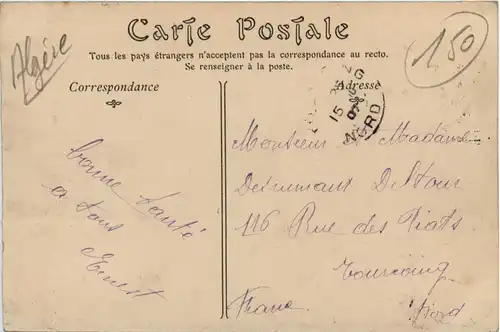 Algérie
Carte Postale
150
Tous les pays étrangers n'acceptent pas la correspondance au recto.
Se renseigner à la poste.
Correspondance
Adresse
15
NORD
bonne santé
a tous
Ernest
Monsieur et Madame
Desrumaux Deltour
116 Rue des Piats
Tourcoing
France Nord